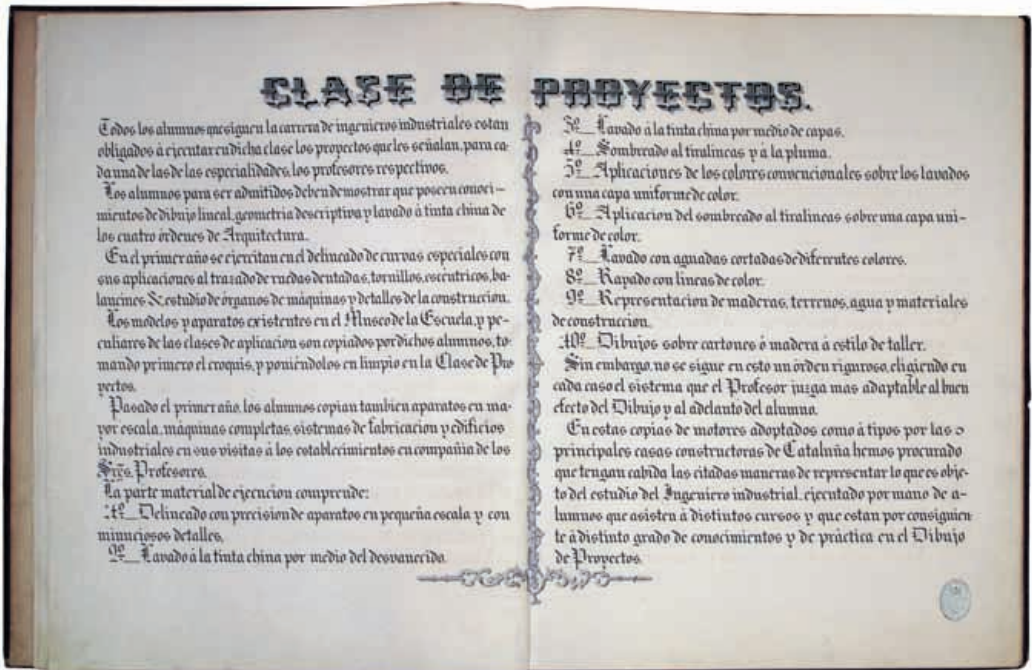 CLASE DE PROYECTOS.
Todos los alumnos que siguen la carrera de ingenieros industriales estan
obligados á ejecutar en dicha clase los proyectos que les señalan, para ca-
da una de las de las especialidades, los profesores respectivos.
Los alumnos para ser admitidos deben demostrar que poseen conoci-
mientos de dibujo lineal, geometria descriptiva y lavado á tinta china de
los cuatro órdenes de Arquitectura.
En el primer año se ejercitan en el delineado de curvas especiales con
sus aplicaciones al trazado de ruedas dentadas, tornillos, escéntricos, ba-
lancines &. estudio de órganos de máquinas y detalles de la construccion.
Los modelos y aparatos existentes en el Museo de la Escuela, y pe-
culiares de las clases de aplicacion son copiados por dichos alumnos, to-
mando primero el croquis, y poniéndolos en limpio en la Clase de Pro
yectos.
Pasado el primer año, los alumnos copian tambien aparatos en ma-
yor escala, máquinas completas, sistemas de fabricacion y edificios
industriales en sus visitas á los establecimientos en compañia de los
Sres. Profesores.
La parte material de ejecucion comprende:
1º Delineado con precision de aparatos en pequeña escala y con
minuciosos detalles.
2º Lavado á la tinta china por medio del desvanecido.
3º Lavado á la tinta china por medio de capas.
4º Sombreado al tiralineas y á la pluma.
5º Aplicaciones de los colores convencionales sobre los lavados
con una capa uniforme de color.
6º Aplicacion del sombreado al tiralineas sobre una capa uni-
forme de color.
7º Lavado con aguadas cortadas de diferentes colores.
8º Rayado con lineas de color.
9º Representacion de maderas, terrenos, agua y materiales
de construccion.
10º Dibujos sobre cartones ó madera á estilo de taller.
Sin embargo, no se sigue en esto un órden riguroso, eligiendo en
cada caso el sistema que el Profesor juzga mas adaptable al buen
efecto del Dibujo y al adelanto del alumno.
En estas copias de motores adoptados como á tipos por las
principales casas constructoras de Cataluña hemos procurado
que tengan cabida las citadas maneras de representar lo que es obje-
to del estudio del Ingeniero industrial, ejecutado por mano de a-
lumnos que asisten á distintos cursos y que estan por consiguien
te á distinto grado de conocimientos y de práctica en el Dibujo
de Proyectos.